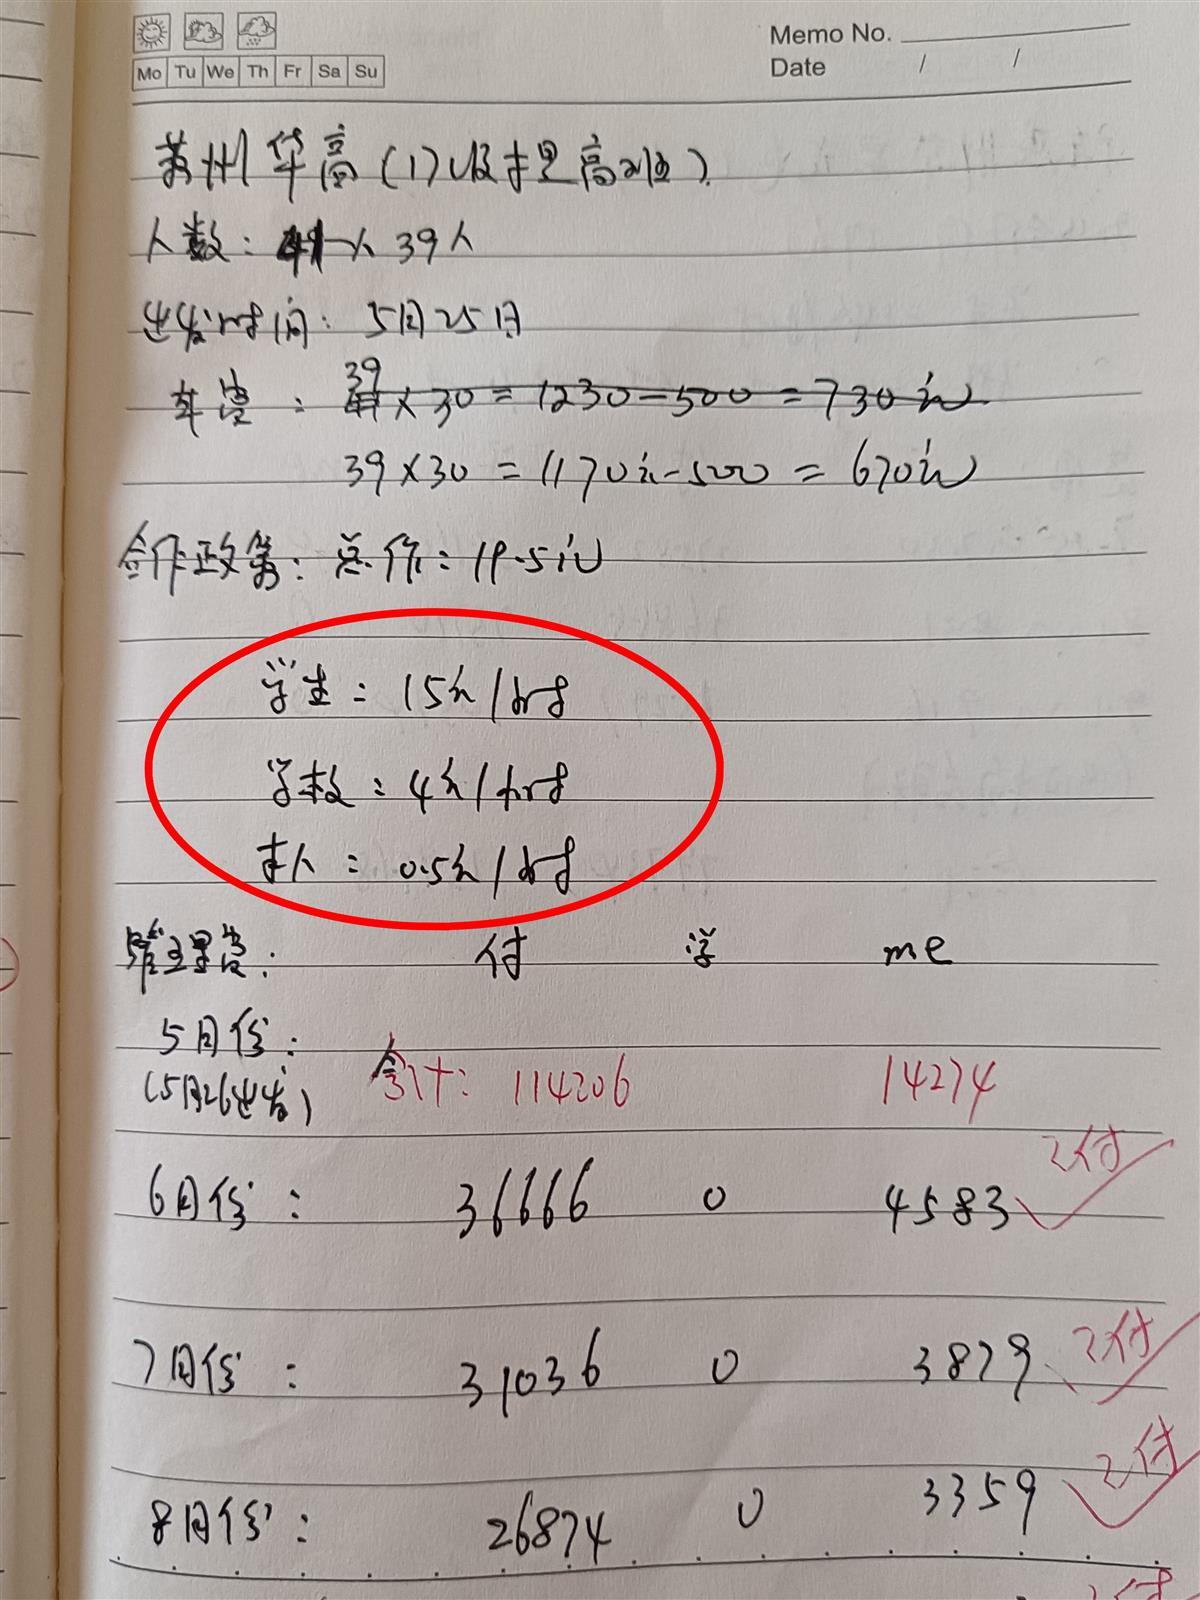 Memo No.
Mo Tu We Th Fr Sa Su
Date / /
苏州华高(1)
人数: 39人
出发时间: 5月25日
39
车费: ×30=1230-500=730元
39×30=1170元-500=670元
合作政策: 总价: 19.5元
学生: 15元/时
学校: 4元/时
本人: 0.5元/时
管理费: 付 学 me
5月份:
(5月26出发) 合计: 114206 14274
6月份: 36666 0 4583 已付
7月份: 31036 0 3879 已付
8月份: 26874 0 3359 已付